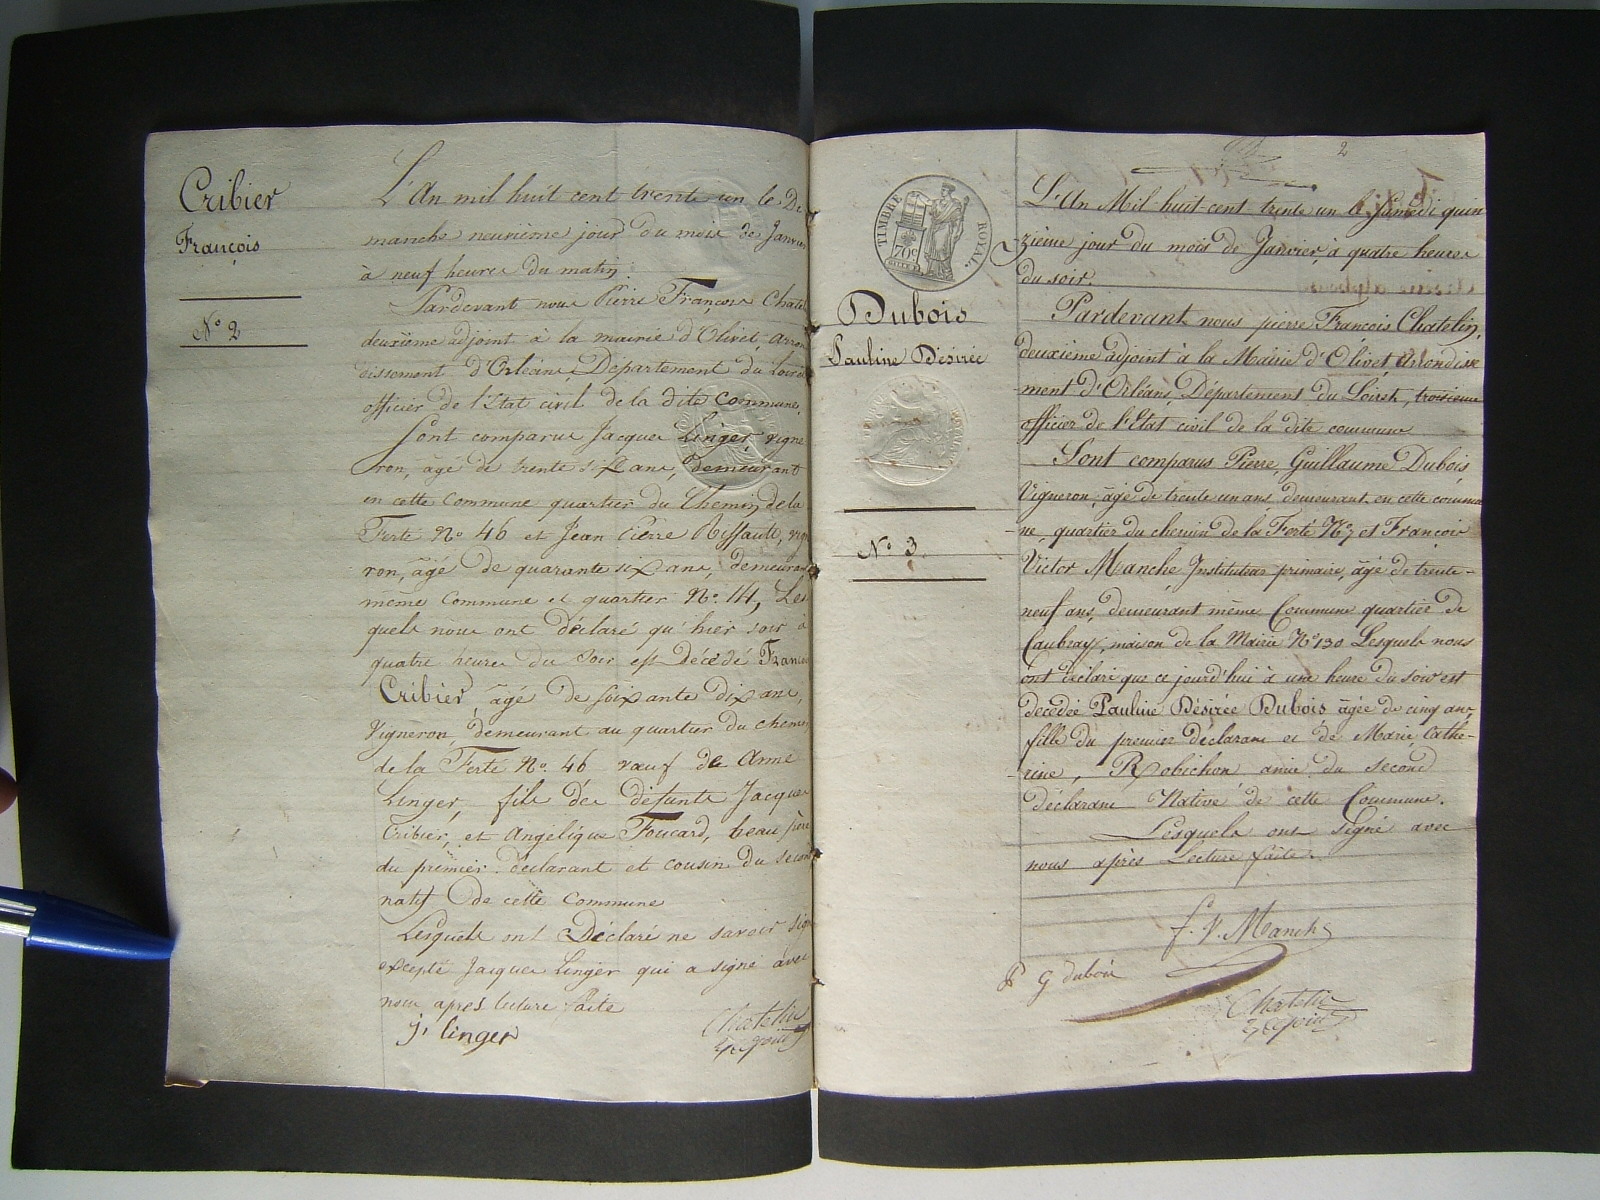 Cribier
François
N° 2
L'An mil huit cent trente un le Di
manche neuvième jour du mois de Janvier
à neuf heures du matin.
Pardevant nous Pierre François Chatel
deuxième adjoint à la mairie d'Olivet, arron
dissement d'Orléans, Département du Loiret
officier de l'Etat civil de la dite commune.
Sont comparus Jacques Linger, vigne
ron, âgé de trente six ans, demeurant
en cette Commune quartier du Chemin de la
Ferté N° 46 et Jean Pierre Rissault, vign
ron, âgé de quarante six ans, demeurant
même Commune et quartier N° 14, Les
quels nous ont déclaré qu'hier soir à
quatre heures du soir est Décédé Franço
Cribier, âgé de soixante dix ans,
Vigneron, demeurant au quartier du chemin
de la Ferté N° 46 veuf de Anne
Linger, fils des défunts Jacques
Cribier, et Angélique Foucard, beau père
du premier déclarant et cousin du second
natif de cette Commune
Lesquels ont Déclaré ne savoir sign
excepté Jacques Linger qui a signé avec
nous après lecture faite
J. linger
Chatelin
adjoint
2
TIMBRE ROYAL.
70c
Dubois
Pauline Désirée
N° 3.
L'An Mil huit cent trente un le Samedi quin
zième jour du mois de Janvier, à quatre heures
du soir.
Pardevant nous pierre François Chatelin,
deuxième adjoint à la Mairie d'Olivet Arrondisse
-ment d'Orléans, Département du Loiret, troisieme
officier de l'Etat civil de la dite commune
Sont comparus Pierre Guillaume Dubois
Vigneron, âgé de trente un ans, demeurant en cette commu
-ne, quartier du chemin de la Ferté N° 7 et François
Victor Manche Instituteur primaire, âgé de trente-
neuf ans, demeurant même Commune quartier de
Caubray, maison de la Mairie N° 130 Lesquels nous
ont déclaré que ce jourd'hui à une heure du soir est
décédée Pauline Désirée Dubois âgée de cinq ans,
fille du premier déclarant et de Marie Cathe-
-rine, Robichon amie du second
déclarant Native de cette Commune.
Lesquels ont signé avec
nous après Lecture faite.
f. V. Manche
P G dubois
Chatelin
adjoint